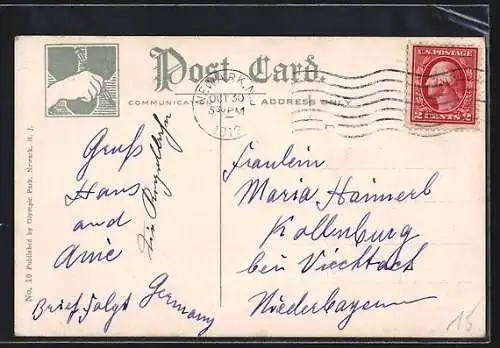 Post Card.
COMMUNICATION ADDRESS ONLY
NEWARK, N.J.
OCT 30
5 30 PM
1912
U.S. POSTAGE
2 CENTS 2
Gruß
Hans
and
Anie
Brief folgt Germany
Fräulein
Maria Hannerl
Kollnburg
bei Viechtach
Niederbayern
No. 10 Published by Olympic Park, Newark, N. J.
15